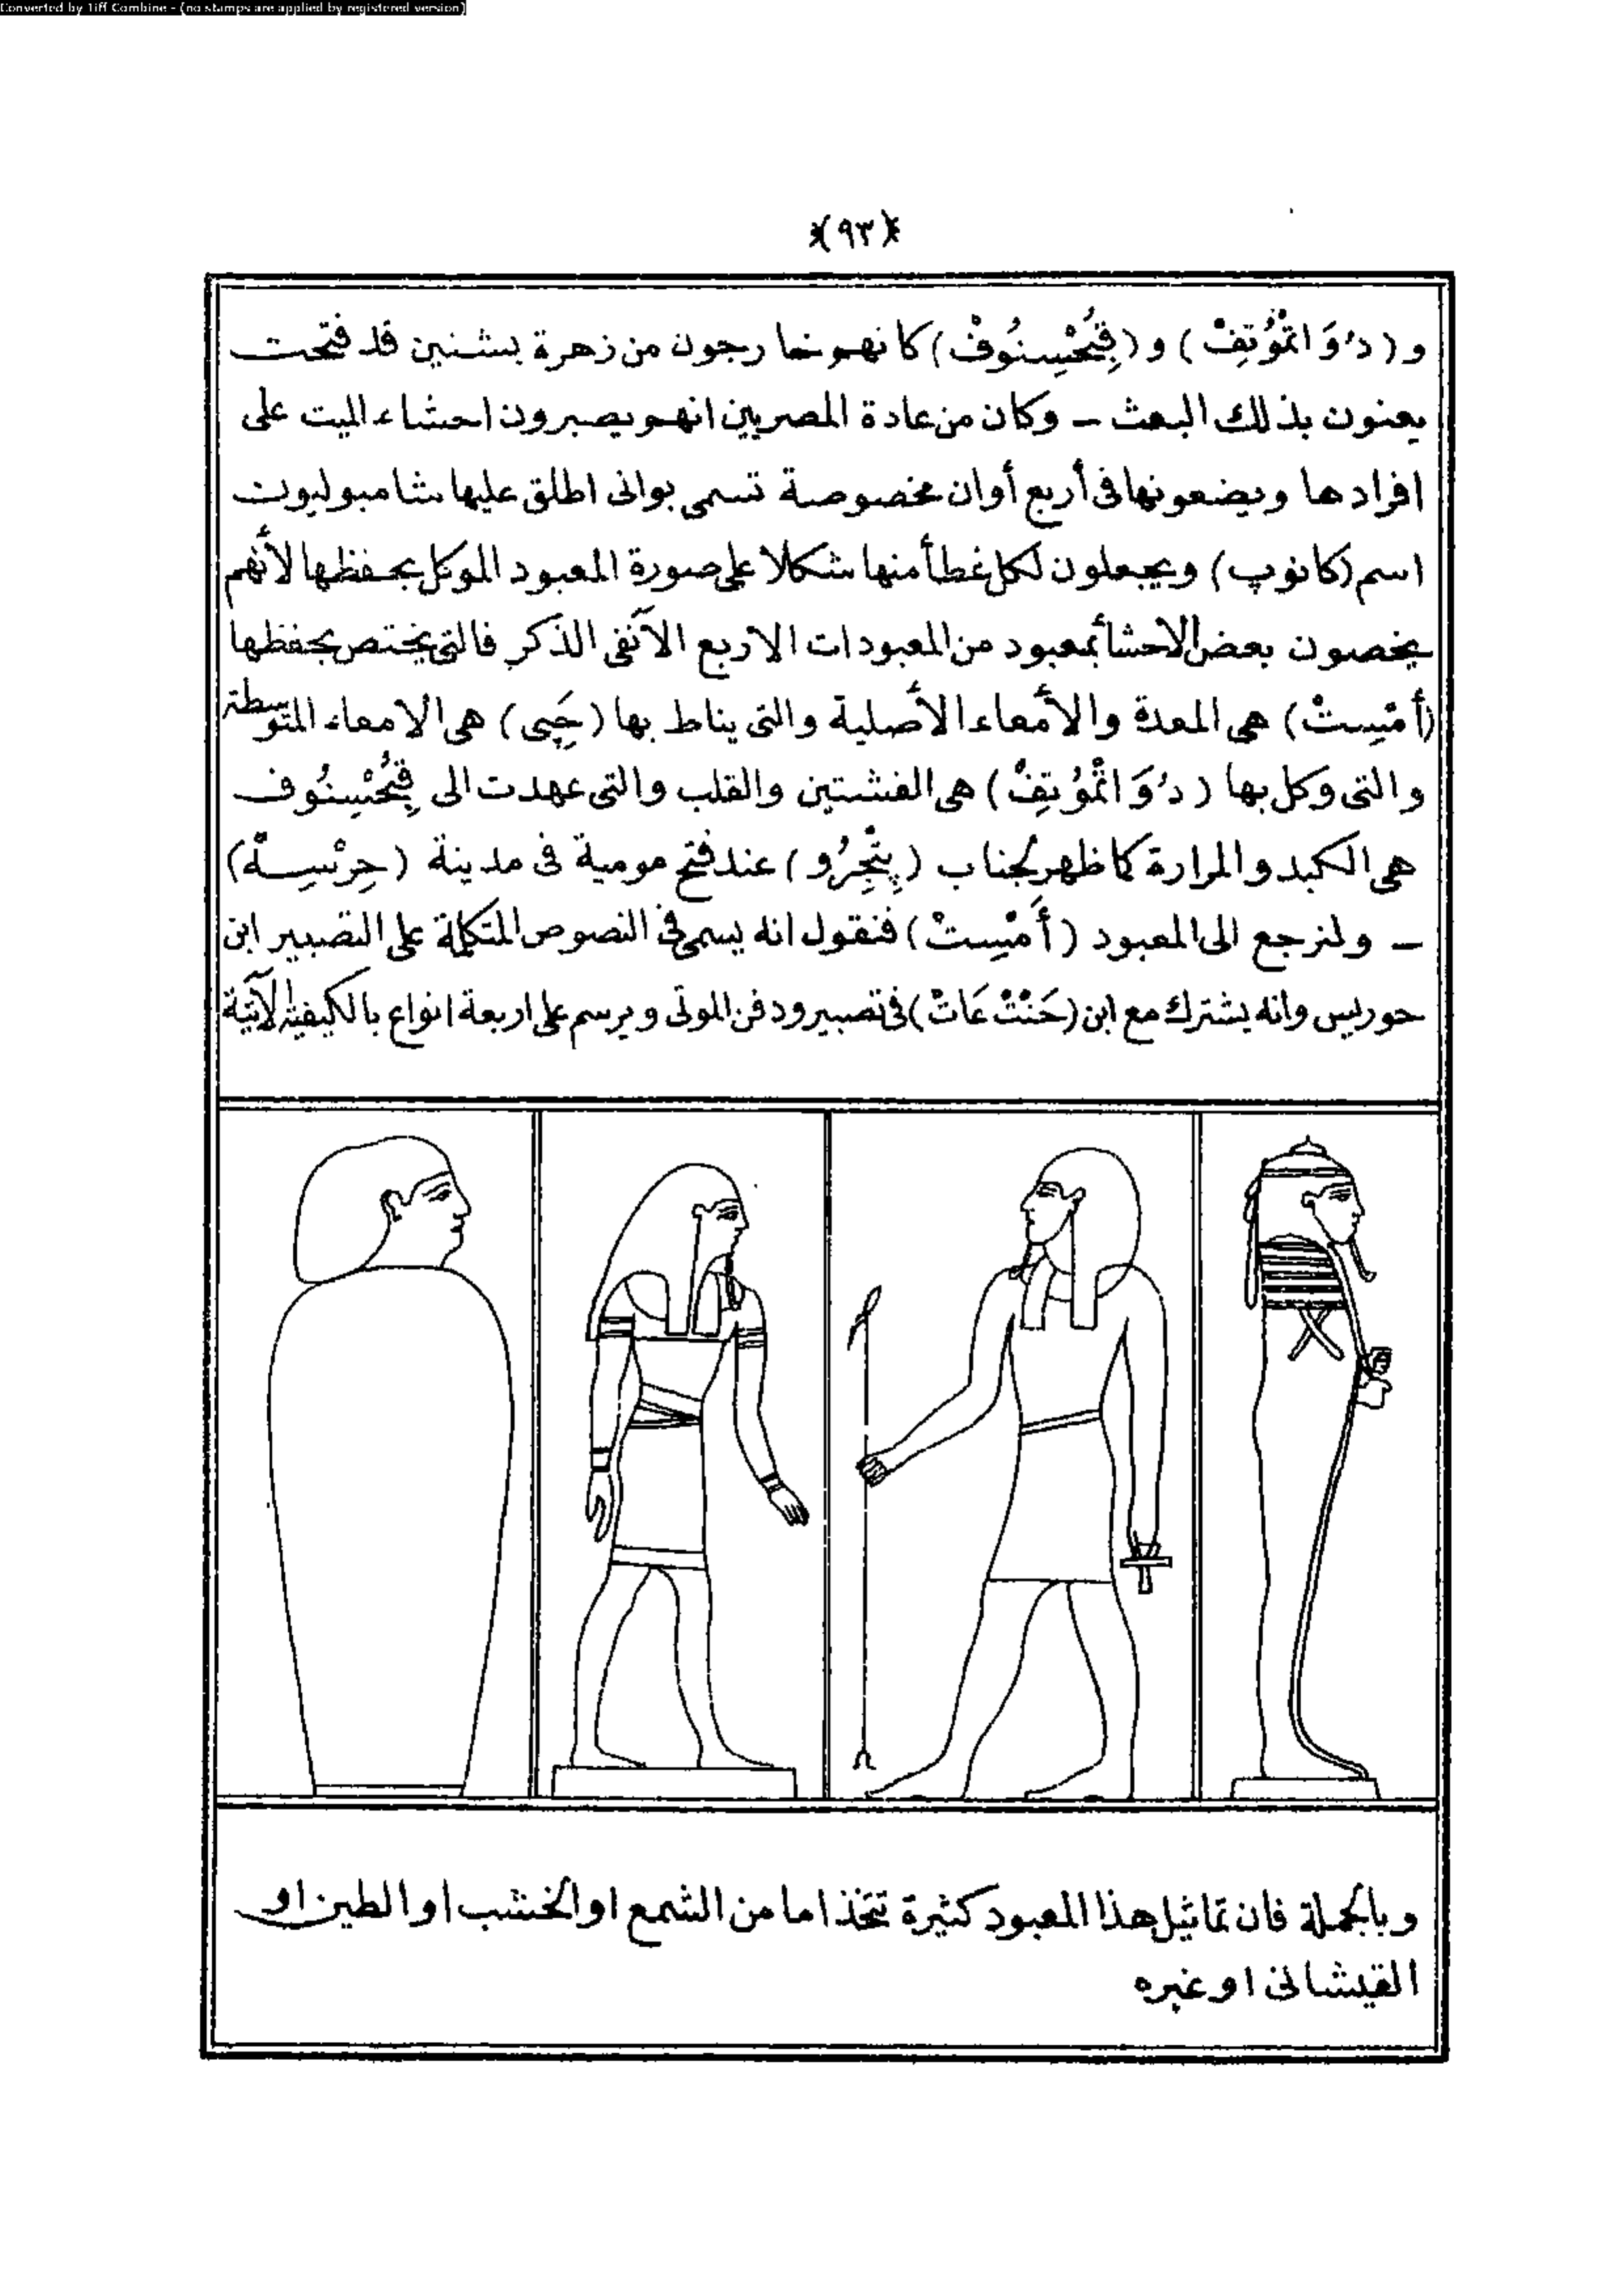 Converted by Tiff Combine - (no stamps are applied by registered version)
(٩٣)
و (دُوَاتْمُوُتِفْ) و (قِبُحْسِنُوفْ) كانهم خارجون من زهرة بشنين قد فتحت
يعنون بذلك البعث ـ وكان من عادة المصريين انهم يصبرون احشاء الميت على
افرادها ويضعونها فى أربع أوان مخصوصة تسمى بوانى اطلق عليها شامبوليون
اسم (كانوپ) ويجعلون لكل غطأ منها شكلا على صورة المعبود الموكل بحفظها لأنهم
يخصون بعض الاحشأ بمعبود من المعبودات الاربع الآنفى الذكر فالتى يختص بحفظها
(أَمْسِتْ) هى المعدة والأمعاء الأصلية والتى يناط بها (حَپِى) هى الامعاء المتوسطة
والتى وكل بها (دُوَاتْمُوُتِفْ) هى الفشتين والقلب والتى عهدت الى قِبُحْسِنُوف
هى الكبد والمرارة كما ظهر لجناب (پِتْجِرُو) عند فتح مومية فى مدينة (جِرْسِهْ)
ـ ولنرجع الى المعبود (أَمْسِتْ) فنقول انه يسمى فى النصوص المتكلمة على التصبير ابن
حوريس وانه يشترك مع ابن (حَنْتْ عَاتْ) فى تصبير ودفن الموتى ويرسم على اربعة انواع بالكيفية الآتية
وبالجملة فان تماثيل هذا المعبود كثيرة تتخذ اما من الشمع او الخشب او الطين او
القيشانى او غيره